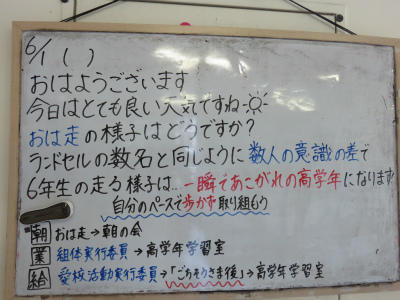 6/1 ( )
おはようございます
今日はとても良い天気ですね
おは走の様子はどうですか?
ランドセルの数名と同じように数人の意識の差で
6年生の走る様子は…一瞬であこがれの高学年になります
自分のペースで歩かず取り組もう
朝 おは走→朝の会
業 組体実行委員→高学年学習室
給 愛校活動実行委員→「ごちそうさま後」→高学年学習室